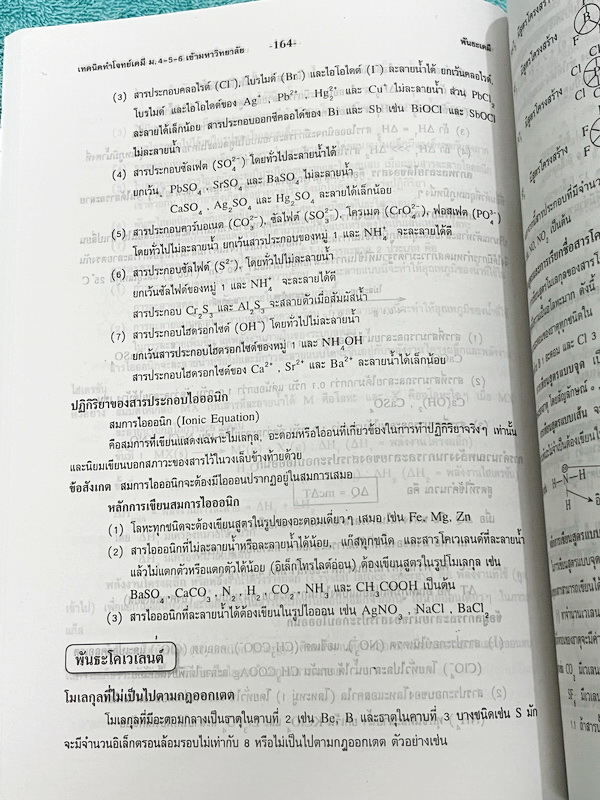 เทคนิคทำโจทย์เคมี ม.4-5-6 เข้ามหาวิทยาลัย -164- พันธะเคมี
(3) สารประกอบคลอไรด์ (Cl⁻), โบรไมด์ (Br⁻) และไอโอไดด์ (I⁻) ละลายน้ำได้ ยกเว้นคลอไรด์,
โบรไมด์ และไอโอไดด์ของ Ag⁺, Pb²⁺, Hg₂²⁺ และ Cu⁺ ไม่ละลายน้ำ ส่วน PbCl₂
ละลายได้เล็กน้อย สารประกอบออกซีคลอไดของ Bi และ Sb เช่น BiOCl และ SbOCl
ไม่ละลายน้ำ
(4) สารประกอบซัลเฟต (SO₄²⁻) โดยทั่วไปละลายน้ำได้
ยกเว้น PbSO₄, SrSO₄ และ BaSO₄ ไม่ละลายน้ำ
CaSO₄, Ag₂SO₄ และ Hg₂SO₄ ละลายได้เล็กน้อย
(5) สารประกอบคาร์บอเนต (CO₃²⁻), ซัลไฟต์ (SO₃²⁻), โครเมต (CrO₄²⁻), ฟอสเฟต (PO₄³⁻)
โดยทั่วไปไม่ละลายน้ำ ยกเว้นสารประกอบของหมู่ 1 และ NH₄⁺ จะละลายได้ดี
(6) สารประกอบซัลไฟด์ (S²⁻), โดยทั่วไปไม่ละลายน้ำ
ยกเว้นซัลไฟด์ของหมู่ 1 และ NH₄⁺ จะละลายได้ดี
สารประกอบ Cr₂S₃ และ Al₂S₃ จะสลายตัวเมื่อสัมผัสน้ำ
(7) สารประกอบไฮดรอกไซด์ (OH⁻) โดยทั่วไปไม่ละลายน้ำ
ยกเว้นสารประกอบไฮดรอกไซด์ของหมู่ 1 และ NH₄OH
สารประกอบไฮดรอกไซด์ของ Ca²⁺, Sr²⁺ และ Ba²⁺ ละลายน้ำได้เล็กน้อย
ปฏิกิริยาของสารประกอบไอออนิก
สมการไอออนิก (Ionic Equation)
คือสมการที่เขียนแสดงเฉพาะโมเลกุล, อะตอมหรือไอออนที่เกี่ยวข้องในการทำปฏิกิริยาจริงๆ เท่านั้น
และนิยมเขียนบอกสภาวะของสารไว้ในวงเล็บข้างท้ายด้วย
ข้อสังเกต สมการไอออนิกจะต้องมีไอออนปรากฏอยู่ในสมการเสมอ
หลักการเขียนสมการไอออนิก
(1) โลหะทุกชนิดจะต้องเขียนสูตรในรูปของอะตอมเดี่ยวๆ เสมอ เช่น Fe, Mg, Zn
(2) สารไอออนิกที่ไม่ละลายน้ำหรือละลายน้ำได้น้อย, แก๊สทุกชนิด และสารโคเวเลนต์ที่ละลายน้ำ
แล้วไม่แตกตัวหรือแตกตัวได้น้อย (อิเล็กโทรไลต์อ่อน) ต้องเขียนสูตรในรูปโมเลกุล เช่น
BaSO₄, CaCO₃, N₂, H₂, CO₂, NH₃ และ CH₃COOH เป็นต้น
(3) สารไอออนิกที่ละลายน้ำได้ต้องเขียนในรูปไอออน เช่น AgNO₃, NaCl, BaCl₂
พันธะโคเวเลนต์
โมเลกุลที่ไม่เป็นไปตามกฎออกเตต
โมเลกุลที่มีอะตอมกลางเป็นธาตุในคาบที่ 2 เช่น Be, B และธาตุในคาบที่ 3 บางชนิดเช่น S มัก
จะมีจำนวนอิเล็กตรอนล้อมรอบไม่เท่ากับ 8 หรือไม่เป็นไปตามกฎออกเตต ตัวอย่างเช่น